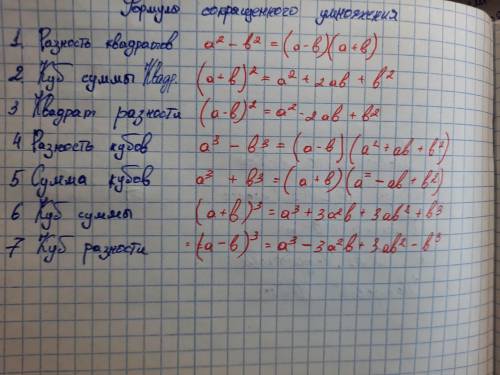 Формулы сокращенного умножения
1 Разность квадратов a² - b² = (a-b)(a+b)
2 Куб суммы Квадр. (a+b)² = a² + 2ab + b²
3 Квадрат разности (a-b)² = a² - 2ab + b²
4 Разность кубов a³ - b³ = (a-b)(a²+ab+b²)
5 Сумма кубов a³ + b³ = (a+b)(a² - ab + b²)
6 Куб суммы (a+b)³ = a³ + 3a²b + 3ab² + b³
7 Куб разности = (a-b)³ = a³ - 3a²b + 3ab² - b³